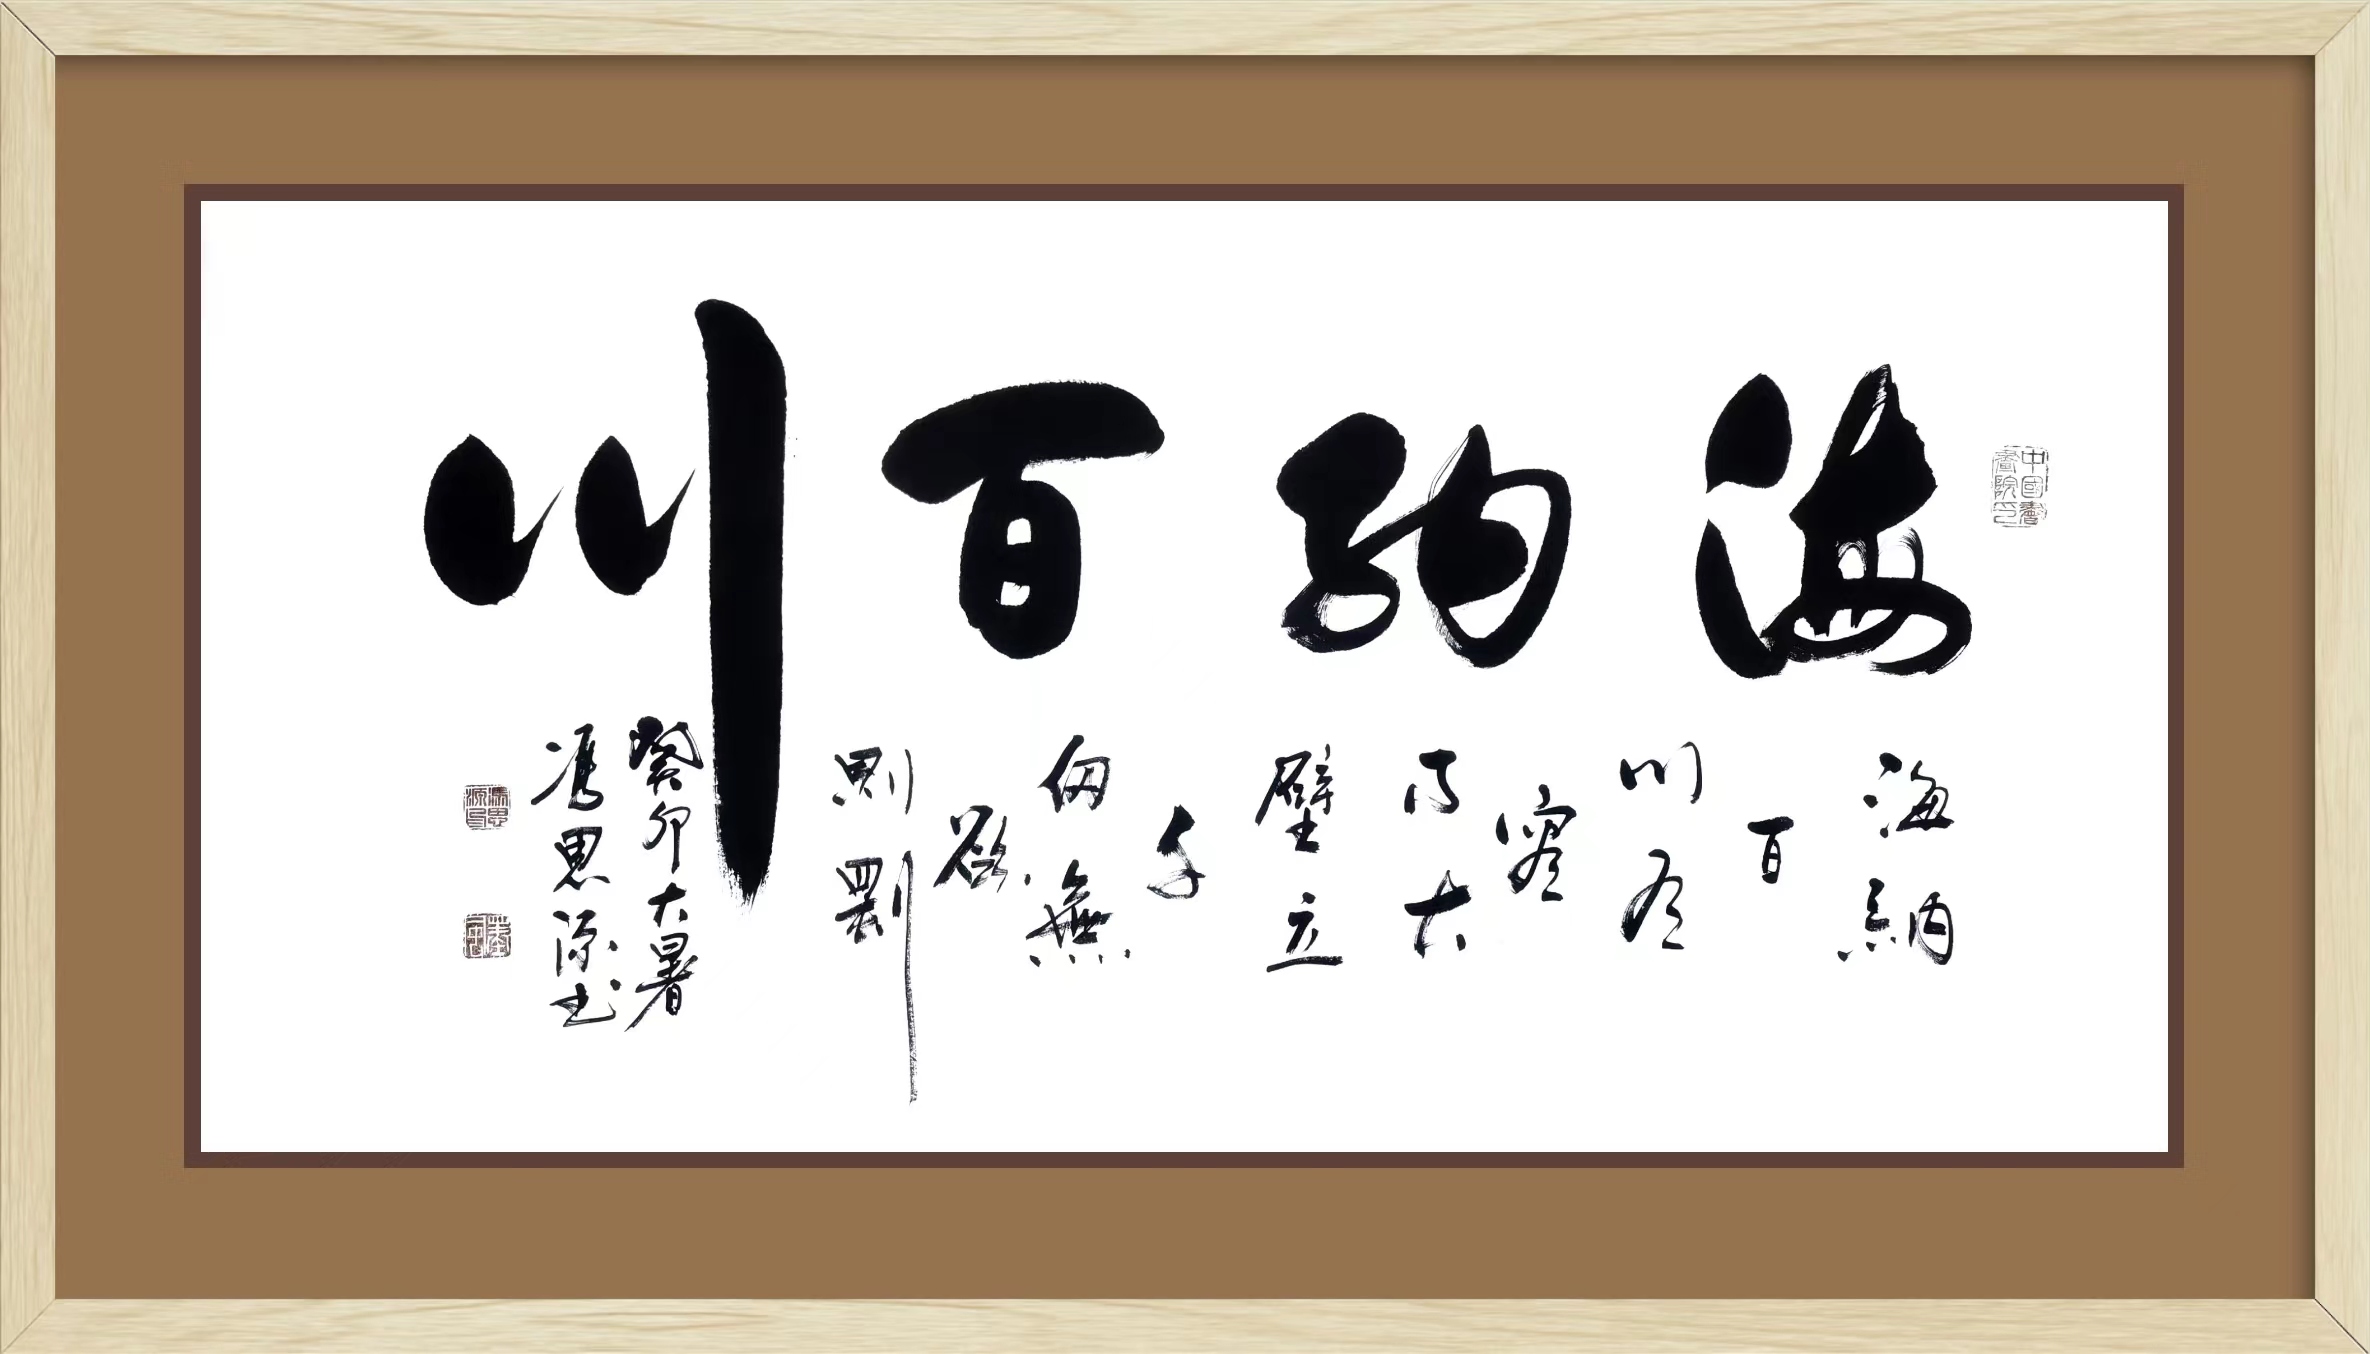 中國書畫院印
海納百川
海納
百
川有
容
乃大
壁立
千
仞無
欲
則剛
癸卯大暑
馮思源书
馮思源印